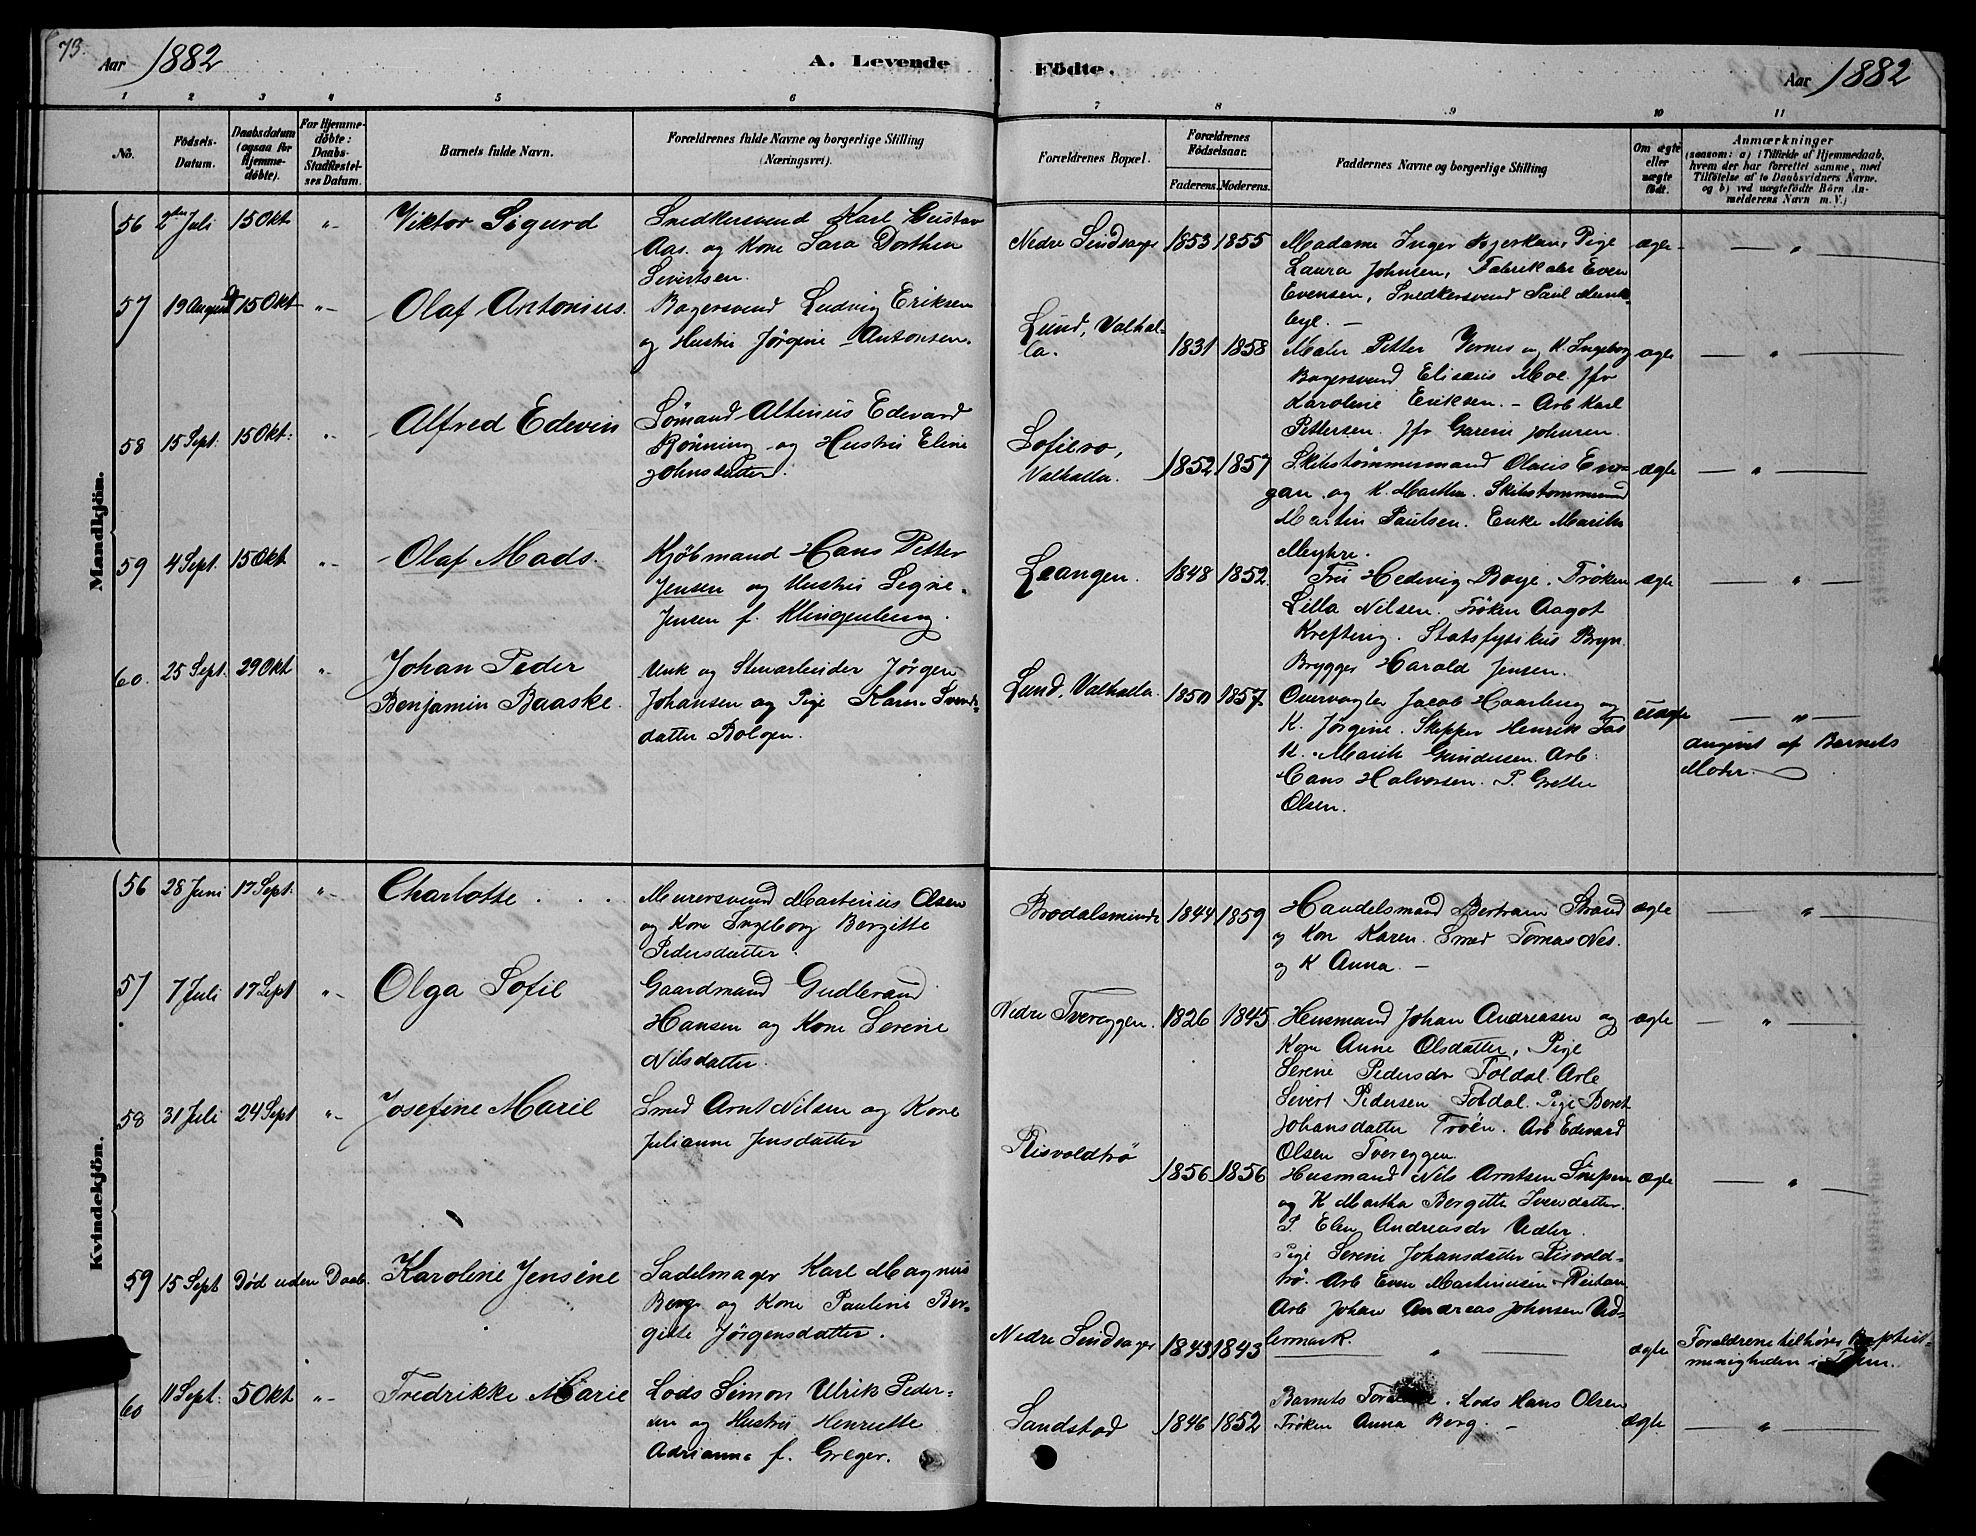 73.
Aar 1882
A. Levende Födte.
Aar 1882
1 2 3 4 5 6 7 8 9 10 11
No.
Födsels-
Datum.
Daabsdatum
(ogsaa for
Hjemme-
döbte).
For Hjemme-
döbte:
Daabs-
Stadfæstel-
ses Datum.
Barnets fulde Navn.
Forældrenes fulde Navne og borgerlige Stilling
(Næringsvei).
Forældrenes Bopæl.
Forældrenes
Födselsaar.
Faderens. Moderens.
Faddernes Navne og borgerlige Stilling
Om ægte
eller
uægte
födt.
Anmærkninger
(saasom: a) i Tilfælde af Hjemmedaab,
hvem der har forrettet samme, med
Tilföielse af to Daabsvidners Navne.
og b) ved uægtefödte Börn An-
melderens Navn m. V.)
Mandkjön.
56 2den Juli 15 Okt "- Viktor Sigurd
Snedkersvend Karl Gustav
Aas. og Kone Sara Dorthea
Sivertsen.
Nedre 1853 1855
Madame Inger Bjerkan, Pige
Laura Johnsen, Fabrikarb Even
Evensen, Snedkersvend Paul Munk-
bye. —
ægte — " —
57 19 August 15 Okt "- Olaf Antonius.
Bagersvend Ludvig Eriksen
og Hustru Jørgine Antonsen.
Lund, Valhal-
la.
1831 1858
Maler Petter Vernes og K. Ingeborg
Bagersvend Eliseus Moe. Jfr
Karoline Eriksen. – Arb Karl
Pettersen. Jfr Garine Johnsen.
ægte — " —
58 15 Sept. 15 Okt: "- Alfred Edevin
Sømand Altinius Edevard
Rönning og Hustru Eline
Johnsdatter.
Sofilero,
Valhalla.
1852 1857
Skibstømmermand Olaus Eve-
gan og K. Marthe. Skibstømmermand
Martin Paulsen. Enke Marithe
Myhre.
ægte — " —
59 4 Sept. 15 Okt "- Olaf Mads.
Kjöbmand Hans Petter
Jensen og Hustru Signe
Jensen f. Klingenberg.
Leangen. 1848 1852
Fru Hedevig Boye. Frøken
Lilla Nilsen. Frøken Aagot
Krefting. Statsfysikus Bryn
Brygger Harald Jensen.
ægte — " —
60. 25 Sept. 29 Okt "-
Johan Peder
Benjamin Baaske.
Unk og Stenarbeider Jørgen
Johansen og Pige Karen Svends-
datter Bolgen.
Lund, Valhalla. 1850 1857
Overvogter Jacob Haarberg og
K. Jørgine. Skipper Henrik Fas
K. Marith Gundersen. Arb:
Hans Halvorsen. P. Grethe
Olsen.
uægte — " —
angivet af Barnets
Moder.
Kvindekjön.
56 28 Juni 17 Sept. "- Charlotte. . . .
Murersvend Martinius Olsen
og Kone Ingeborg Bergitte
Pedersdatter.
Brodalsminde 1844 1859
Handelsmand Bertram Strand
og Kone Karen. Smed Tomas Nes.
og K Anna. —
ægte — " —
57 7 Juli 17 Sept "- Olga Sofie
Gaardmand Gudbrand
Hansen og Kone Serine
Nilsdatter.
Nedre Tvereggen. 1826 1845
Husmand Johan Andreasen og
Kone Anne Olsdatter, Pige
Serine Pedersdr Foldal. Arb
Sivert Pedersen Foldal. Pige Beret
Johansdatter Trøen. Arb Edvard
Olsen Tvereggen.
ægte — " —
58 31 Juli 24 Sept "- Josefine Marie
Smed Arnt Nilsen og Kone
Julianne Jensdatter
Risvoldtrø 1856 1856
Husmand Nils Arntsen
og K Martha Bergitte Iversdatter.
P. Elen Andreasdr
Pige Serine Johansdatter Risvold-
trø. Arb Even Martinusen Reitan
Arb Johan Andreas Johnsen Vid-
lermark.
ægte — " —
59 15 Sept Død uden Daab. Karoline Jensine
Sadelmager Karl Magnus
Berg og Kone Pauline Ber-
gitte Jørgensdatter.
Nedre 1843 1843
— " —
ægte
Forældrene tilhører Baptist-
menigheden i
60 11 Sept. 5 Okt "- Fredrikke Marie
Lods Simon Ulrik Peder-
sen og Hustru Henriette
Adrianne f. Greger.
Sandstad 1846 1852
Barnets . Lods Hans Olsen
Frøken Anna Berg. —
ægte — " —